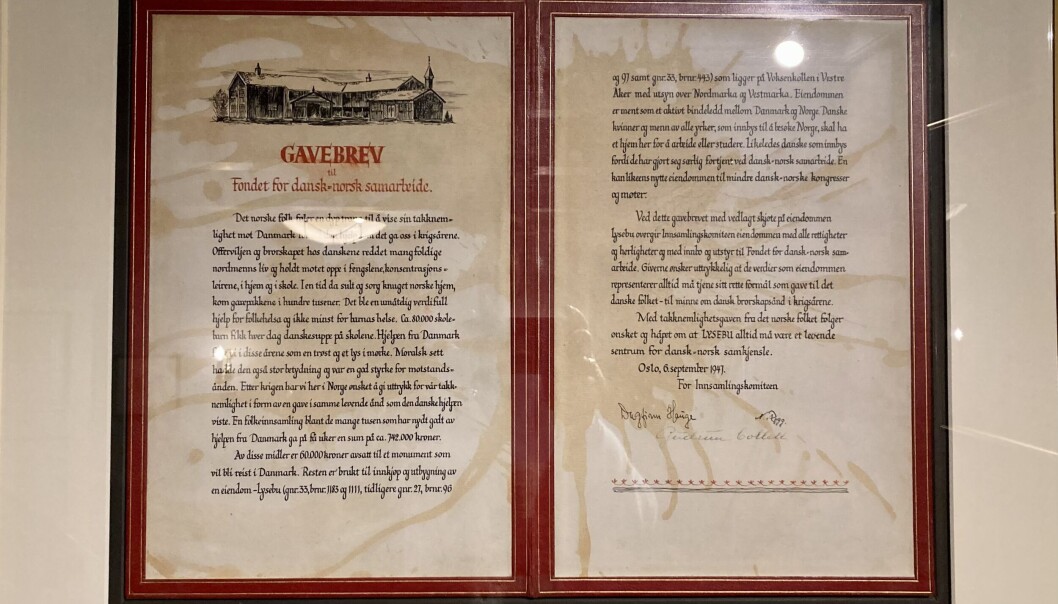 GAVEBREV
til
Fondet for dansk-norsk samarbeide.
Det norske folk føler en dyp trang til å vise sin takknem-
lighet mot Danmark det ga oss i krigsårene.
Offerviljen og brorskapet hos danskene reddet mangfoldige
nordmenns liv og holdt motet oppe i fengslene, konsentrasjons-
leirene, i hjem og i skole. I en tid da sult og sorg knuget norske hjem,
kom gavepakkene i hundre tusener. Det ble en umåtelig verdifull
hjelp for folkehelsa og ikke minst for barnas helse. Ca. 80.000 skole-
barn fikk hver dag danskesuppe på skolene. Hjelpen fra Danmark
i disse årene som en trøst og et lys i mørke. Moralsk sett
hadde den også stor betydning og var en god styrke for motstands-
ånden. Etter krigen har vi her i Norge ønsket å gi uttrykk for vår takk-
nemlighet i form av en gave i samme levende ånd som den danske hjelpen
viste. En folkeinnsamling blant de mange tusen som har nydt godt av
hjelpen fra Danmark ga på få uker en sum på ca. 742.000 kroner.
Av disse midler er 60.000 kroner avsatt til et monument som
vil bli reist i Danmark. Resten er brukt til innkjøp og utbygning av
en eiendom - Lysebu (gnr. 33, brnr. 1183 og 1111, tidligere gnr. 27, brnr. 96
og 97 samt gnr. 33, brnr. 443) som ligger på Voksenkollen i Vestre
Aker med utsyn over Nordmarka og Vestmarka. Eiendommen
er ment som et aktivt bindeledd mellom Danmark og Norge. Danske
kvinner og menn av alle yrker, som innbys til å besøke Norge, skal ha
et hjem her for å arbeide eller studere. Likeledes danske som innbys
fordi de har gjort seg særlig fortjent ved dansk-norsk samarbeide. En
kan likeens nytte eiendommen til mindre dansk-norske kongresser
og møter.
Ved dette gavebrevet med vedlagt skjøte på eiendommen
Lysebu overgir Innsamlingskomiteen eiendommen med alle rettigheter
og herligheter og med innbo og utstyr til Fondet for dansk-norsk sam-
arbeide. Giverne ønsker uttrykkelig at de verdier som eiendommen
representerer alltid må tjene sitt rette formål som gave til det
danske folket - til minne om dansk brorskapsånd i krigsårene.
Med takknemlighetsgaven fra det norske folket følger
ønsket og håpet om at LYSEBU alltid må være et levende
sentrum for dansk-norsk samkjensle.
Oslo, 6. september 1947.
For Innsamlingskomiteen
Dagfinn Hauge